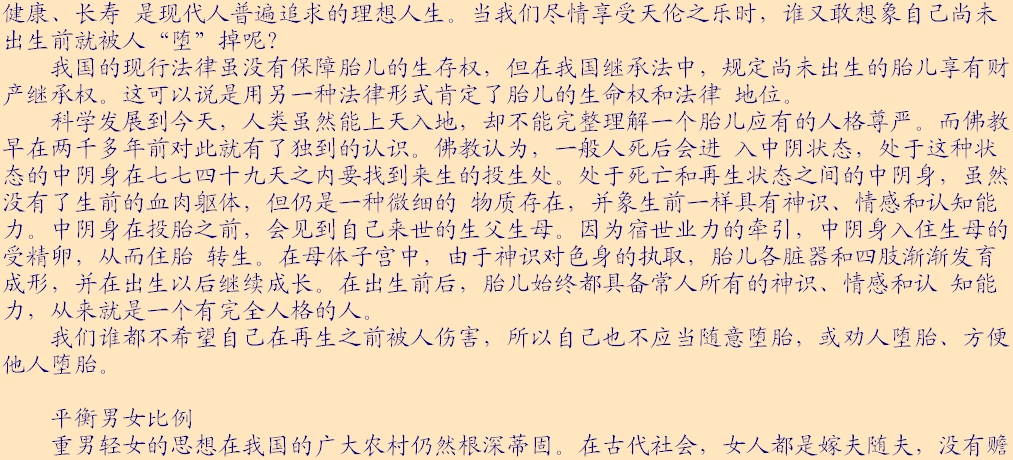 健康、长寿 是现代人普遍追求的理想人生。当我们尽情享受天伦之乐时，谁又敢想象自己尚未
出生前就被人“堕”掉呢？
我国的现行法律虽没有保障胎儿的生存权，但在我国继承法中，规定尚未出生的胎儿享有财
产继承权。这可以说是用另一种法律形式肯定了胎儿的生命权和法律 地位。
科学发展到今天，人类虽然能上天入地，却不能完整理解一个胎儿应有的人格尊严。而佛教
早在两千多年前对此就有了独到的认识。佛教认为，一般人死后会进 入中阴状态，处于这种状
态的中阴身在七七四十九天之内要找到来生的投生处。处于死亡和再生状态之间的中阴身，虽然
没有了生前的血肉躯体，但仍是一种微细的 物质存在，并象生前一样具有神识、情感和认知能
力。中阴身在投胎之前，会见到自己来世的生父生母。因为宿世业力的牵引，中阴身入住生母的
受精卵，从而住胎 转生。在母体子宫中，由于神识对色身的执取，胎儿各脏器和四肢渐渐发育
成形，并在出生以后继续成长。在出生前后，胎儿始终都具备常人所有的神识、情感和认 知能
力，从来就是一个有完全人格的人。
我们谁都不希望自己在再生之前被人伤害，所以自己也不应当随意堕胎，或劝人堕胎、方便
他人堕胎。
平衡男女比例
重男轻女的思想在我国的广大农村仍然根深蒂固。在古代社会，女人都是嫁夫随夫，没有赡